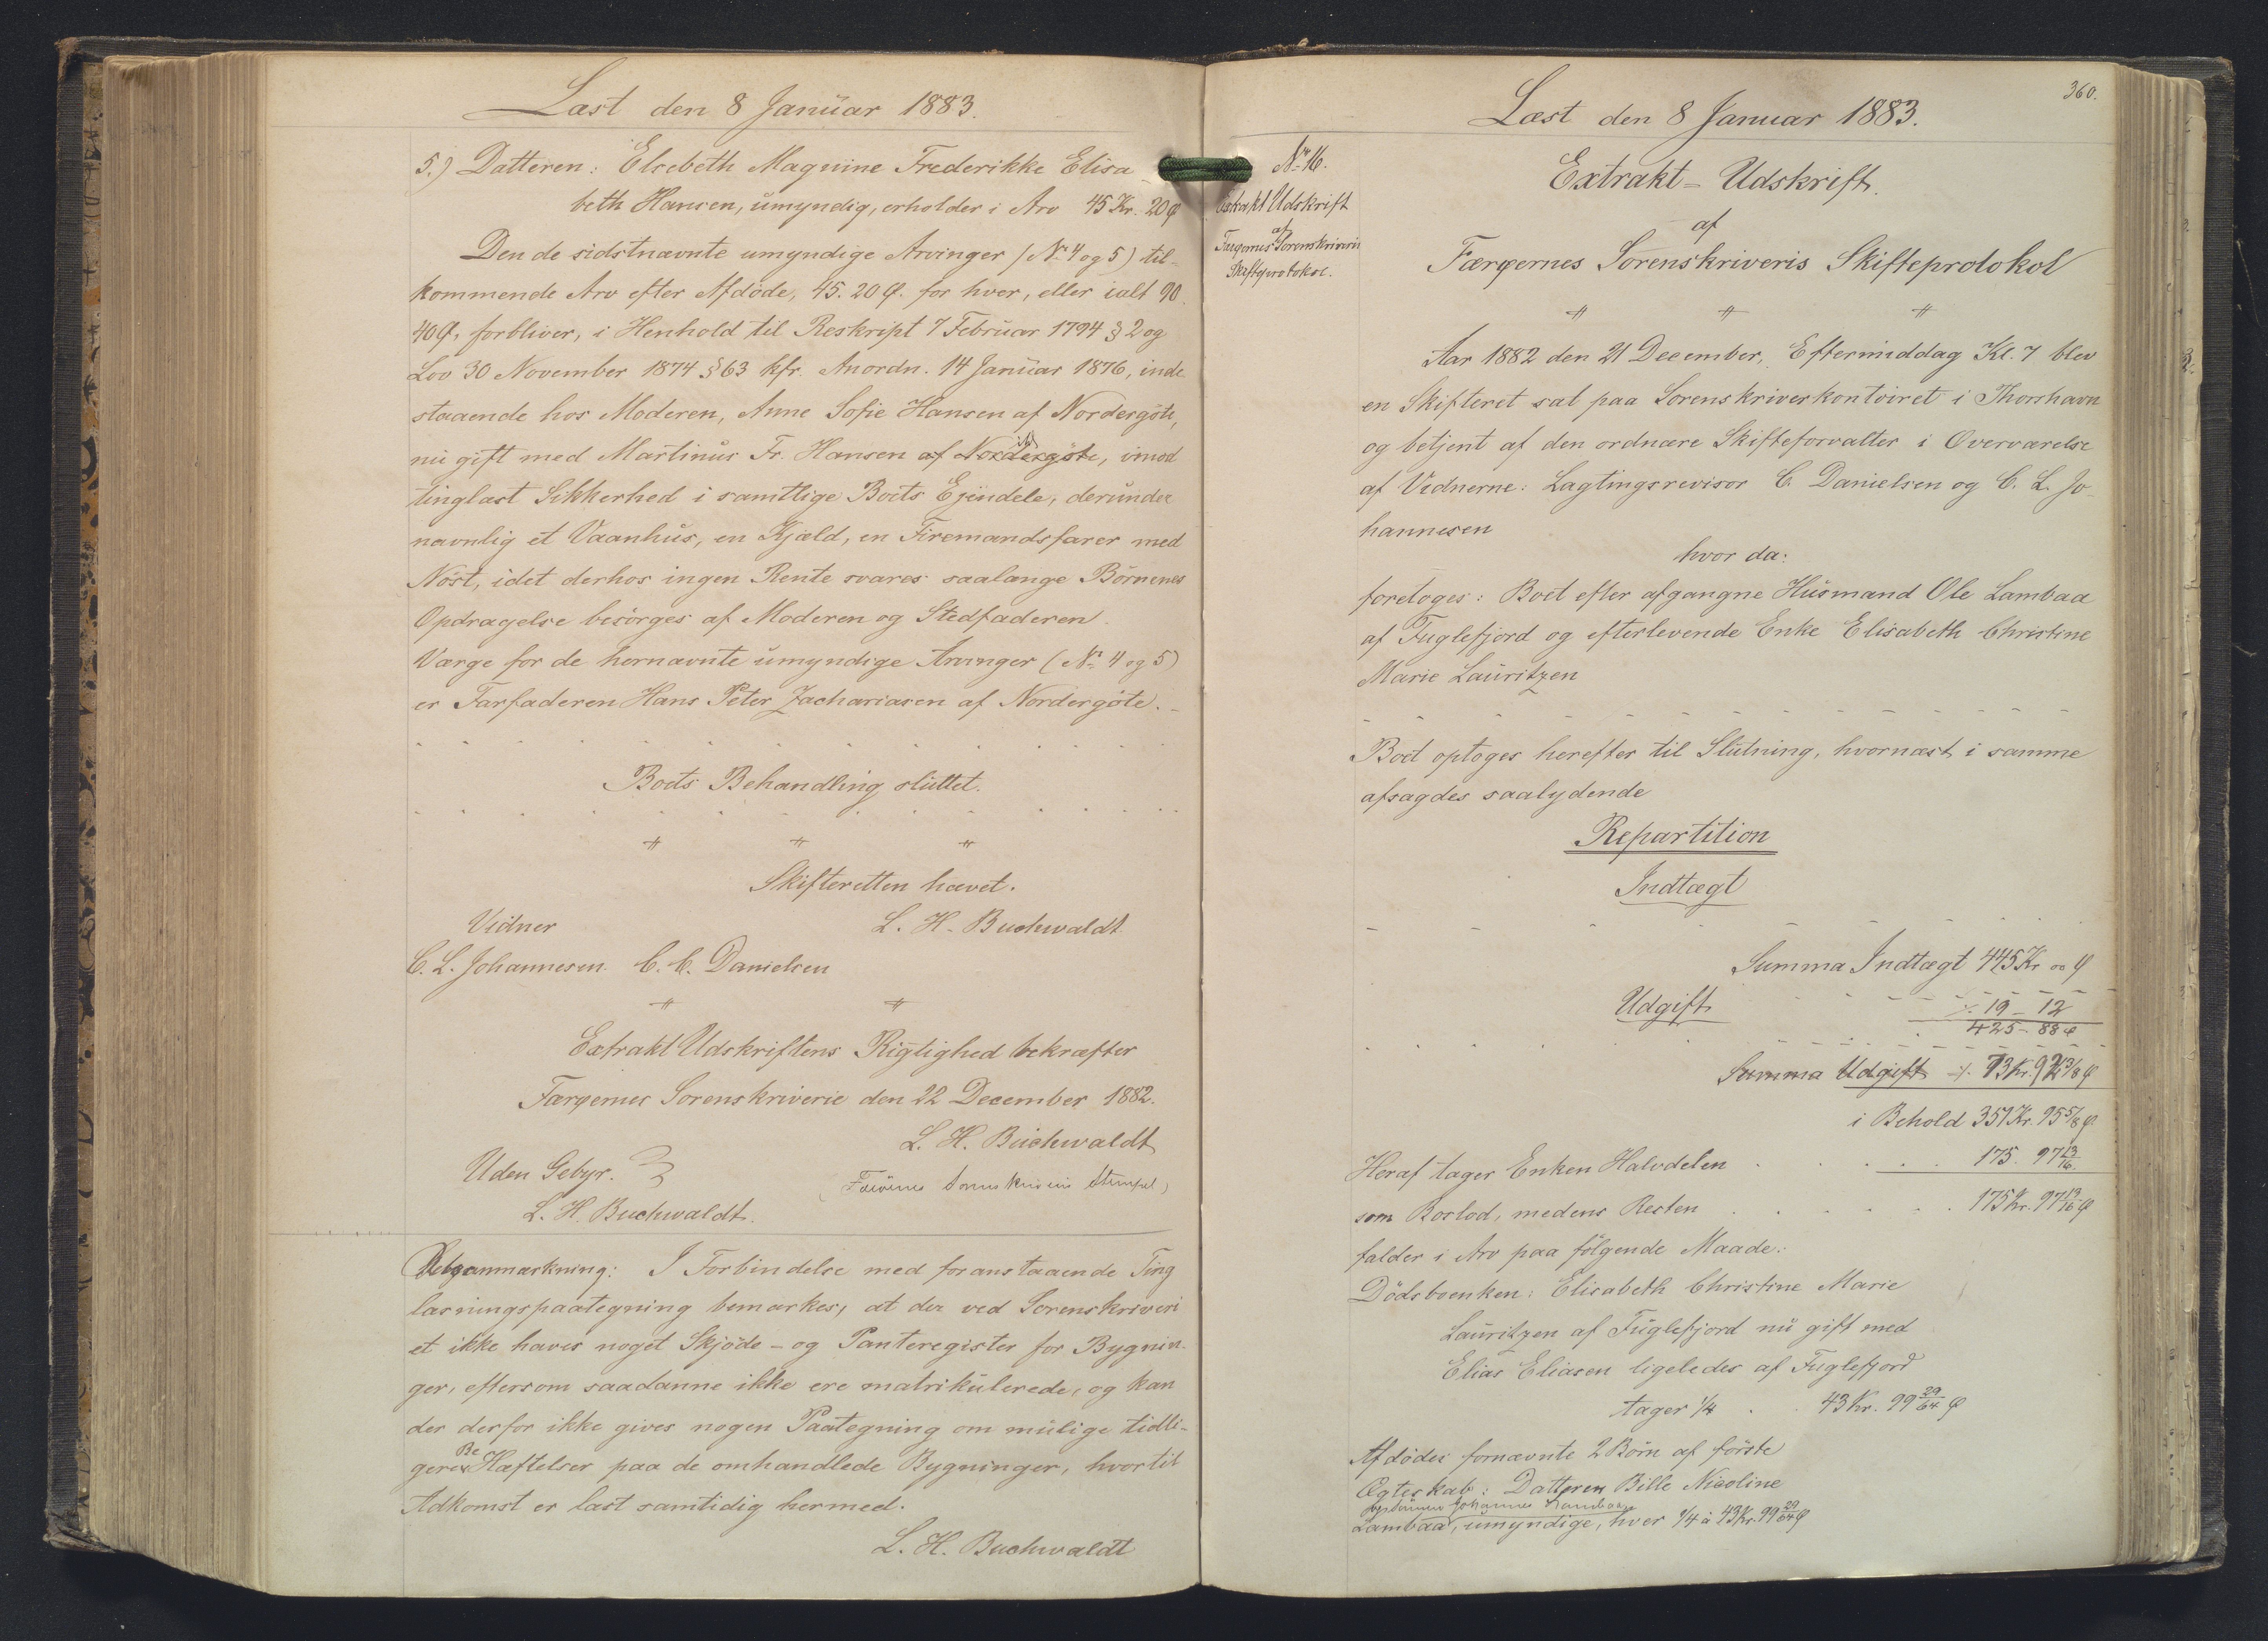 Læst den 8 Januar 1883.
5.) Datteren: Elsebeth Magnine Frederikke Elisa
beth Hansen, umyndig, erholder i Arv 45 Kr. 20 Ø
Den de sidstnævnte umyndige Arvinger (Nr 4 og 5) til-
kommende Arv efter Afdöde, 45. 20 Ø. for hver, eller ialt 90.
40 Ø, forbliver, i Henhold til Reskript 7 Februar 1794 § 2 og
Lov 30 November 1874 § 63 kfr. Anordn. 14 Januar 1876, inde
staaende hos Moderen, Anne Sofie Hansen af Nordergöte,
nu gift med Martinus Fr. Hansen af Nordergöte, imod
tinglæst Sikkerhed i samtlige Boets Ejendele, derunder
navnlig et Vaanhus, en Kjæld, en Firemandsfarer med
Nöst, idet derhos ingen Rente svares saalænge Börnenes
Opdragelse besörges af Moderen og Stedfaderen.
Værge for de hernævnte umyndige Arvinger (Nr 4 og 5)
er Farfaderen Hans Peter Zachariasen af Nordergöte.
Boets Behandling sluttet.
Skifteretten hævet.
Vidner L. H. Buchwaldt
C. L. Johannesen. C. C. Danielsen
Extrakt Udskriftens Rigtighed bekræfter
Færøernes Sorenskriverie den 22 December 1882.
L. H. Buchwaldt
Uden Gebyr.
(Færöernes Sorenskriveris Stempel)
L. H. Buchwaldt.
Retsanmærkning: I Forbindelse med foranstaaende Ting
læsningspaategning bemærkes, at der ved Sorenskriveri
et ikke haves noget Skjöde- og Panteregister for Bygnin-
ger, eftersom saadanne ikke ere matrikulerede, og kan
der derfor ikke gives nogen Paategning om mulige tidli-
gere Be Hæftelser paa de omhandlede Bygninger, hvortil
Adkomst er læst samtidig hermed.
L. H. Buchwaldt
360.
Læst den 8 Januar 1883.
Nr 16.
Extrakt Udskrift
af
Færøernes Sorenskriveris
Skifteprotokol.
Extrakt-Udskrift
af
Færøernes Sorenskriveris Skifteprotokol
Aar 1882 den 21 December, Eftermiddag Kl. 7 blev
en Skifteret sat paa Sorenskriverkontoiret i Thorshavn
og betjent af den ordnære Skifteforvalter i Overværelse
af Vidnerne: Lagtingsrevisor C. Danielsen og C. L. Jo-
hannesen
hvor da:
foretoges: Boet efter afgangne Husmand Ole Lambaa
af Fuglefjord og efterlevende Enke Elisabeth Christine
Marie Lauritzen
Boet optoges herefter til Slutning, hvornæst i samme
afsagdes saalydende
Repartition
Indtægt
Summa Indtægt 445 Kr 00 Ø
Udgift ÷ 19 - 12
425 - 88 Ø
Summa Udgift ÷ 73 Kr. 92 3/8 Ø
i Behold 351 Kr. 95 5/8 Ø.
Heraf tager Enken Halvdelen 175. 97 13/16.
som Boslod, medens Resten 175 Kr. 97 13/16 Ø
falder i Arv paa fölgende Maade:
Dödsboenken: Elisabeth Christine Marie
Lauritzen af Fuglefjord nu gift med
Elias Eliasen ligeledes af Fuglefjord
tager 1/4 43 Kr. 99 29/64 Ø
Afdödes fornævnte 2 Börn af förste
Ægteskab: Datteren Bille Nicoline
og Sönnen Johannes Lambaa
Lambaa, umyndige, hver 1/4 à 43 Kr. 99 29/64 Ø